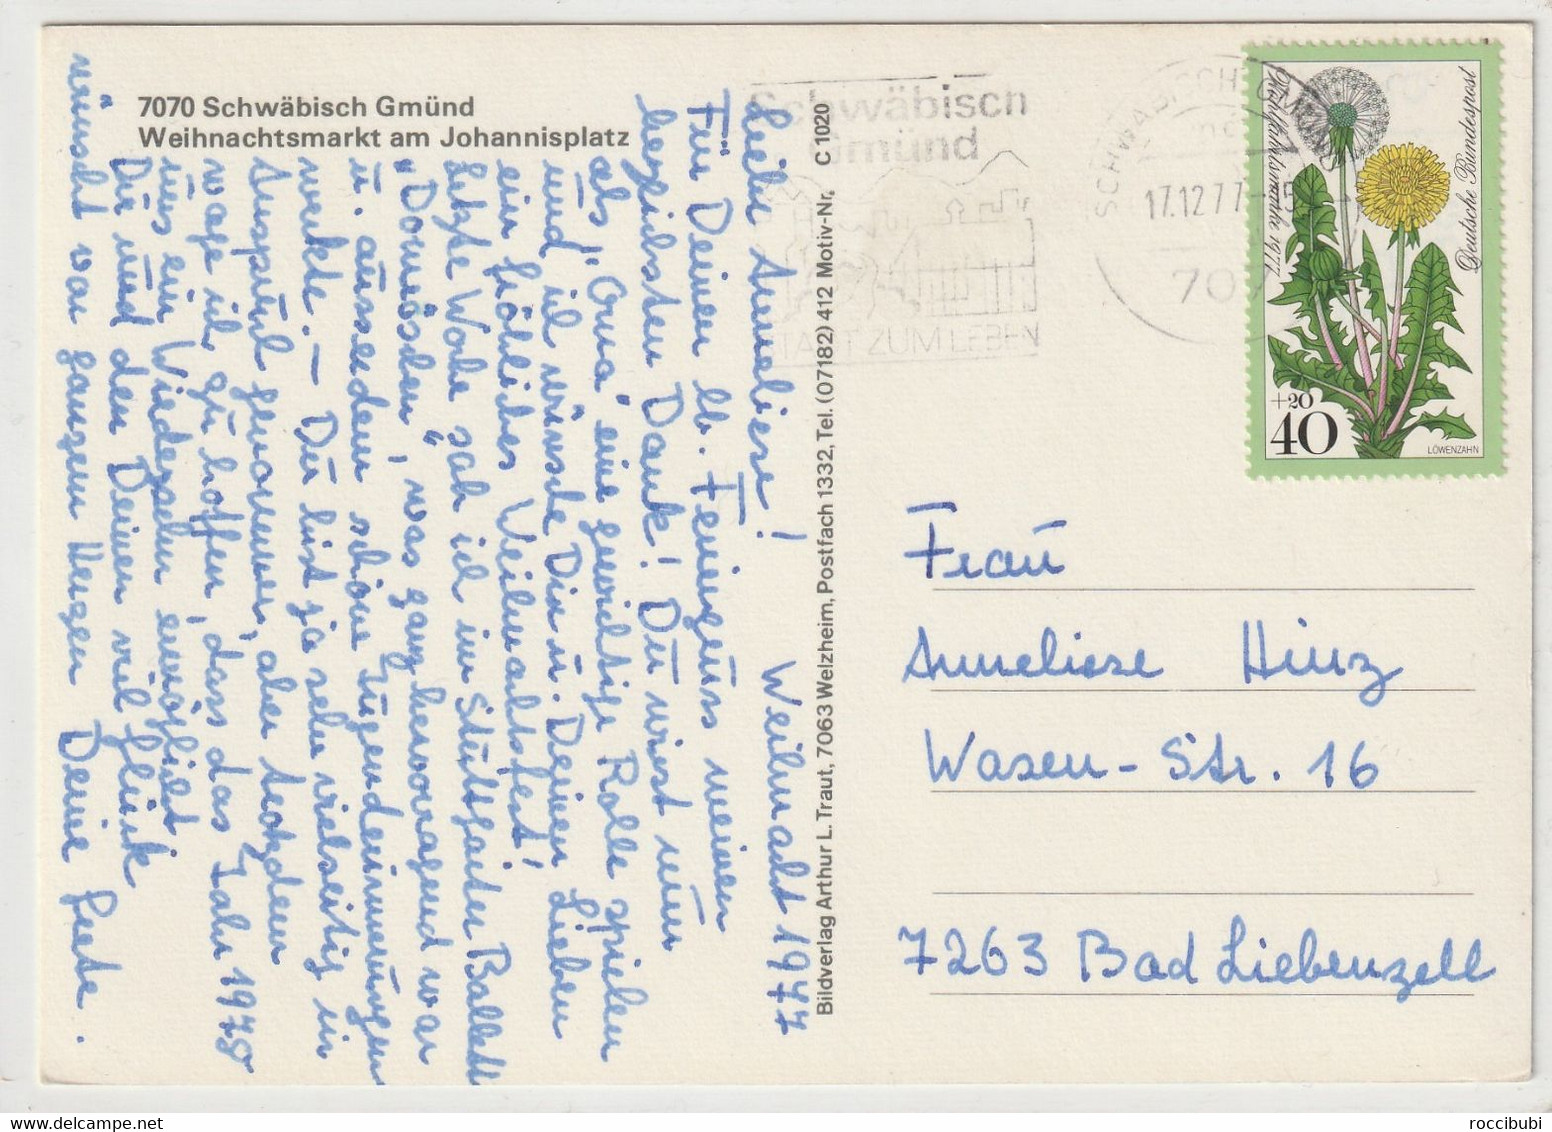 7070 Schwäbisch Gmünd
Weihnachtsmarkt am Johannisplatz
Weihnacht 1977
Liebe Anneliese!
Für Deinen lb. Feriengruss meinen
herzlichsten Dank! Du wirst nun
als "Oma" eine gewichtige Rolle spielen
und ich wünsche Dir u. Deinen Lieben
ein fröhliches Weihnachtsfest!
Letzte Woche sah ich im Stuttgarter Ballett
"Dornröschen", was ganz hervorragend war
u. ausserdem schöne Jugenderinnerungen
weckte. – Du bist ja sehr vielseitig in
Anspruch genommen, aber trotzdem
wage ich zu hoffen, dass das Jahr 1978
uns ein Wiedersehn ermöglicht.
Dir und den Deinen viel Glück
wünscht von ganzem Herzen Deine Grete.
Bildverlag Arthur L. Traut, 7063 Welzheim, Postfach 1332, Tel. (07182) 412 Motiv-Nr. C 1020
Schwäbisch
Gmünd
STADT ZUM LEBEN
SCHWÄBISCH GMÜND
17.12.77
Wohlfahrtsmarke 1977
Deutsche Bundespost
+20
40
LÖWENZAHN
Frau
Anneliese Hinz
Wasen-Str. 16
7263 Bad Liebenzell
roccibubi